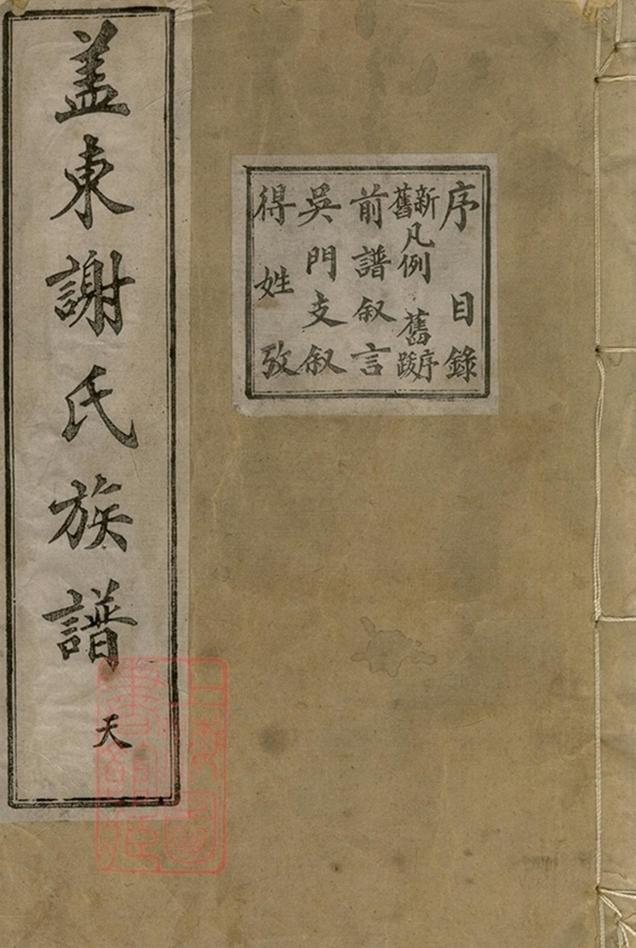 序目錄
新舊凡例 舊序跋
前譜叙言
吳門支叙
得姓攷
盖東謝氏族譜 天